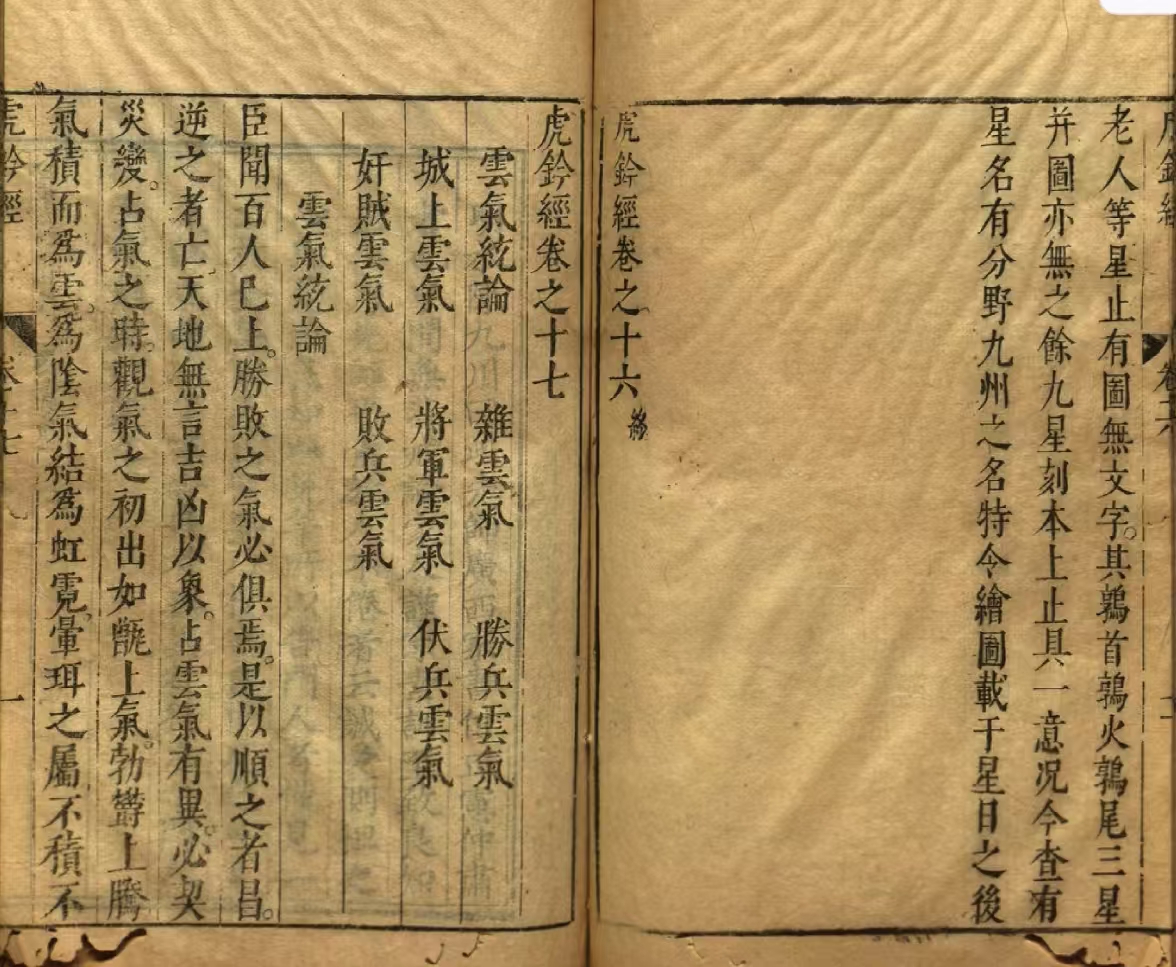 老人等星止有圖無文字。其鶉首鶉火鶉尾三星
并圖亦無之餘九星刻本上止具一意况今查有
星名有分野九州之名特令繪圖載于星日之後
虎鈐經卷之十六 終
虎鈐經卷之十七
雲氣統論 雜雲氣 勝兵雲氣
城上雲氣 將軍雲氣 伏兵雲氣
奸賊雲氣 敗兵雲氣
雲氣統論
臣聞百人已上。勝敗之氣必俱焉。是以順之者昌。
逆之者亡天地無言吉凶以象。占雲氣有異。必契
災變。占氣之時。觀氣之初出如甑上氣。勃欝上騰
氣積而爲雲。爲陰氣結爲虹霓。暈珥之屬不積不
虎鈐經